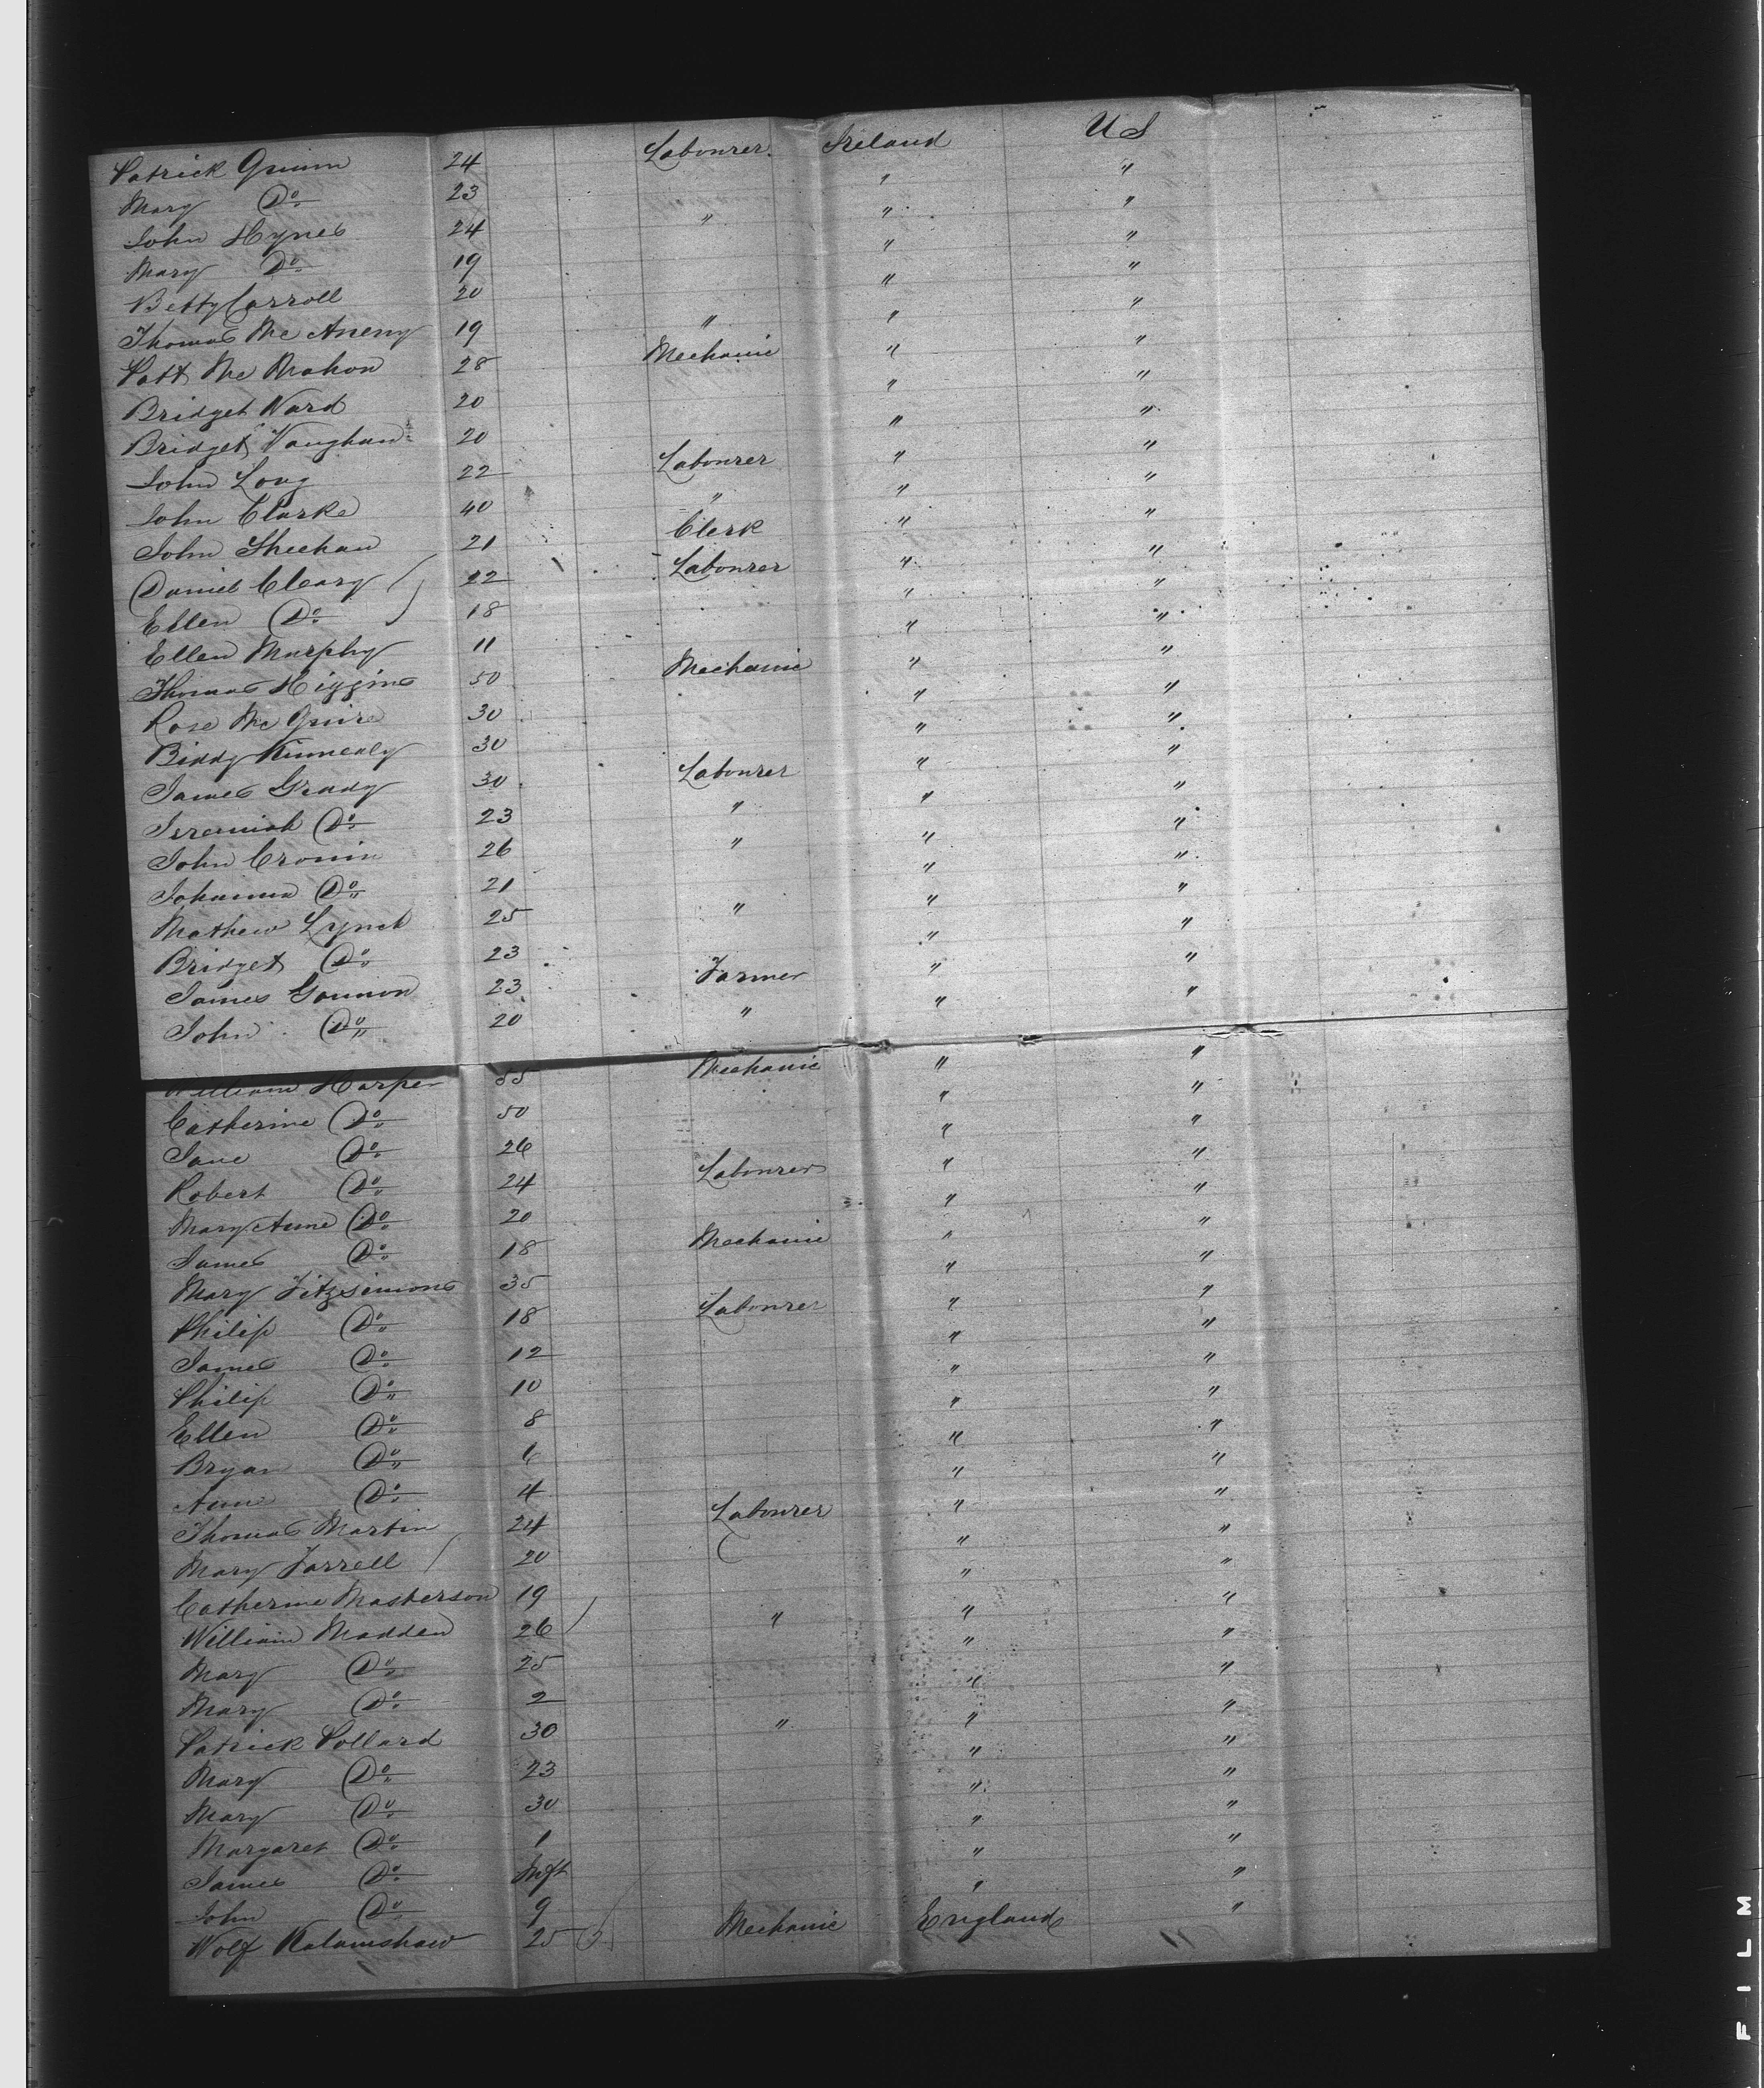 Patrick Quinn 24 Labourer Ireland U S
Mary Do 23 " "
John Hynes 24 " " "
Mary Do 19 " "
Betty Carroll 20 " "
Thomas Mc Aneny 19 " " "
Patt Mc Mahon 28 Mechanic " "
Bridget Ward 20 " "
Bridget Vaughan 20 " "
John Long 22 Labourer " "
John Clarke 40 " " "
John Sheehan 21 Clerk " "
Daniel Cleary 22 Labourer " "
Ellen Do 18 " "
Ellen Murphy 11 " "
Thomas Higgins 50 Mechanic " "
Rose Mc Guire 30 " "
Biddy Kinnealy 30 " "
James Grady 30 Labourer " "
Jeremiah Do 23 " " "
John Cronin 26 " " "
Johanna Do 21 " "
Mathew Lynch 25 " " "
Bridget Do 23 " "
James Gannon 23 Farmer " "
John Do 20 " " "
William Harper 55 Mechanic " "
Catherine Do 50 " "
Jane Do 26 " "
Robert Do 24 Labourer " "
Mary Anne Do 20 " "
James Do 18 Mechanic " "
Mary Fitzsimons 35 " "
Philip Do 18 Labourer " "
James Do 12 " "
Philip Do 10 " "
Ellen Do 8 " "
Bryan Do 6 " "
Anne Do 4 " "
Thomas Martin 24 Labourer " "
Mary Farrell 20 " "
Catherine Masterson 19 " "
William Madden 26 " " "
Mary Do 25 " "
Mary Do 2 " "
Patrick Pollard 30 " " "
Mary Do 23 " "
Mary Do 30 " "
Margaret Do 1 " "
James Do Inft " "
John Do 9 " "
Wolf Kalamshaw 25 Mechanic England "
FILM